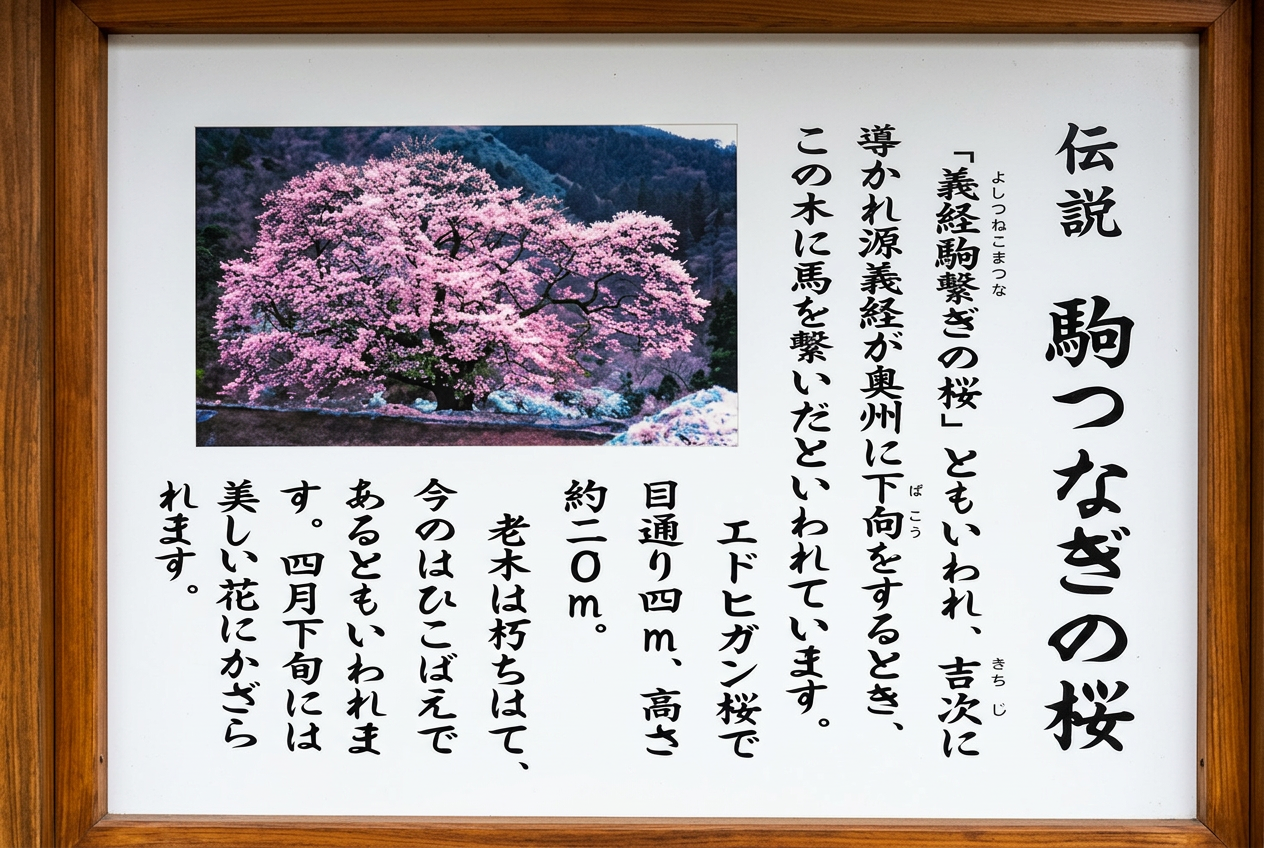 伝説 駒つなぎの桜
「義経駒繋ぎの桜」ともいわれ、吉次に
よしつねこまつな
きちじ
導かれ源義経が奥州に下向をするとき、
ばこう
この木に馬を繋いだといわれています。
エドヒガン桜で
目通り四m、高さ
約二〇m。
老木は朽ちはて、
今のはひこばえで
あるともいわれま
す。四月下旬には
美しい花にかざら
れます。